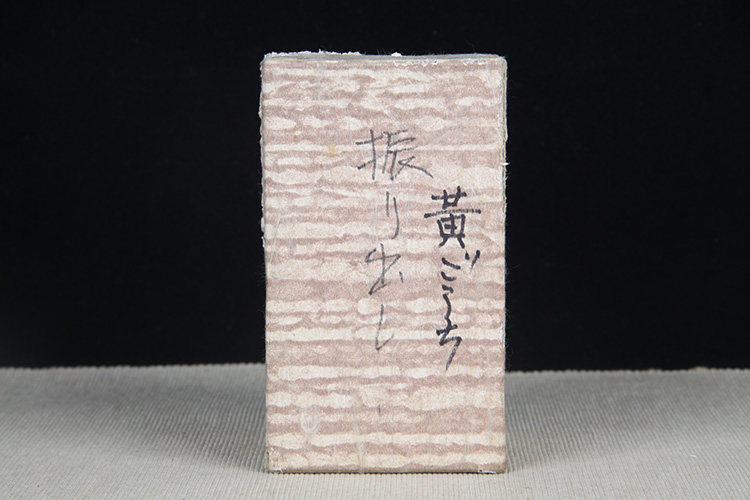 黄ごうち
振り出し